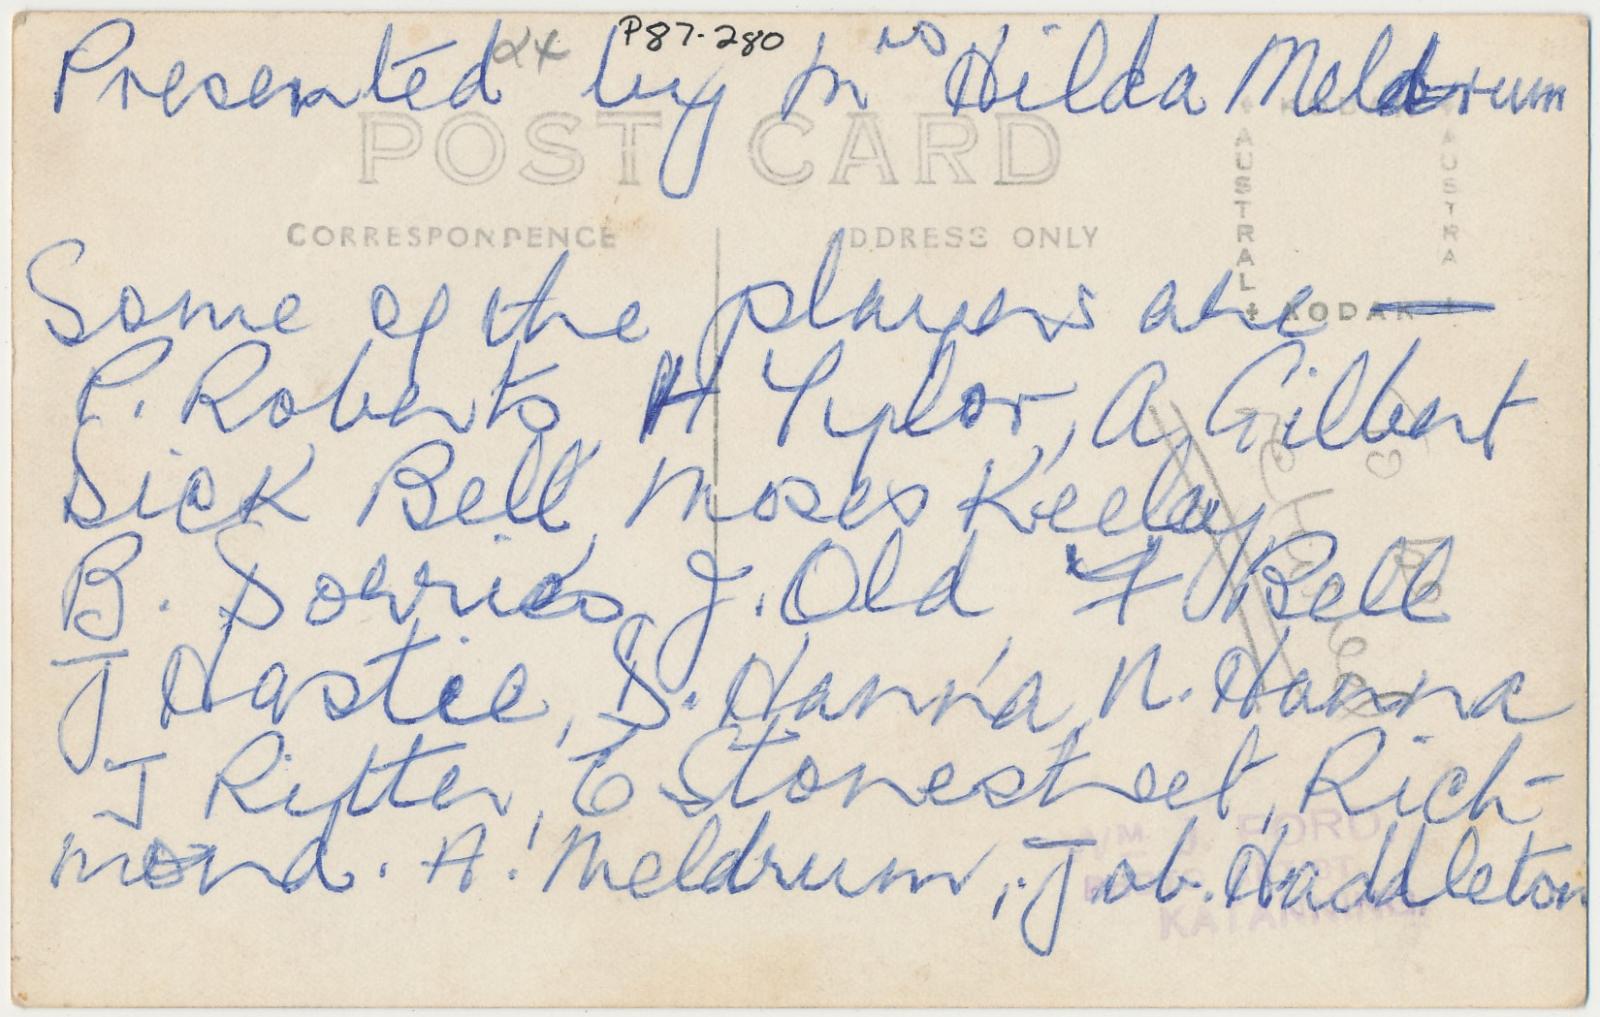 P87-280
Presented by Mrs Hilda Meldrum
POST CARD
CORRESPONDENCE ADDRESS ONLY
AUSTRAL
KODAK
Some of the players are —
P. Roberts, H Tylor, A. Gilbert
Dick Bell, Moses Keeley
B. Sorries, J. Old F Bell
J Hastie, S. Hanna, N. Hanna
J Ritter, E Stonestreet, Rich-
mond. A. Meldrum, Job. Haddleton
J. FORD
KATANNING